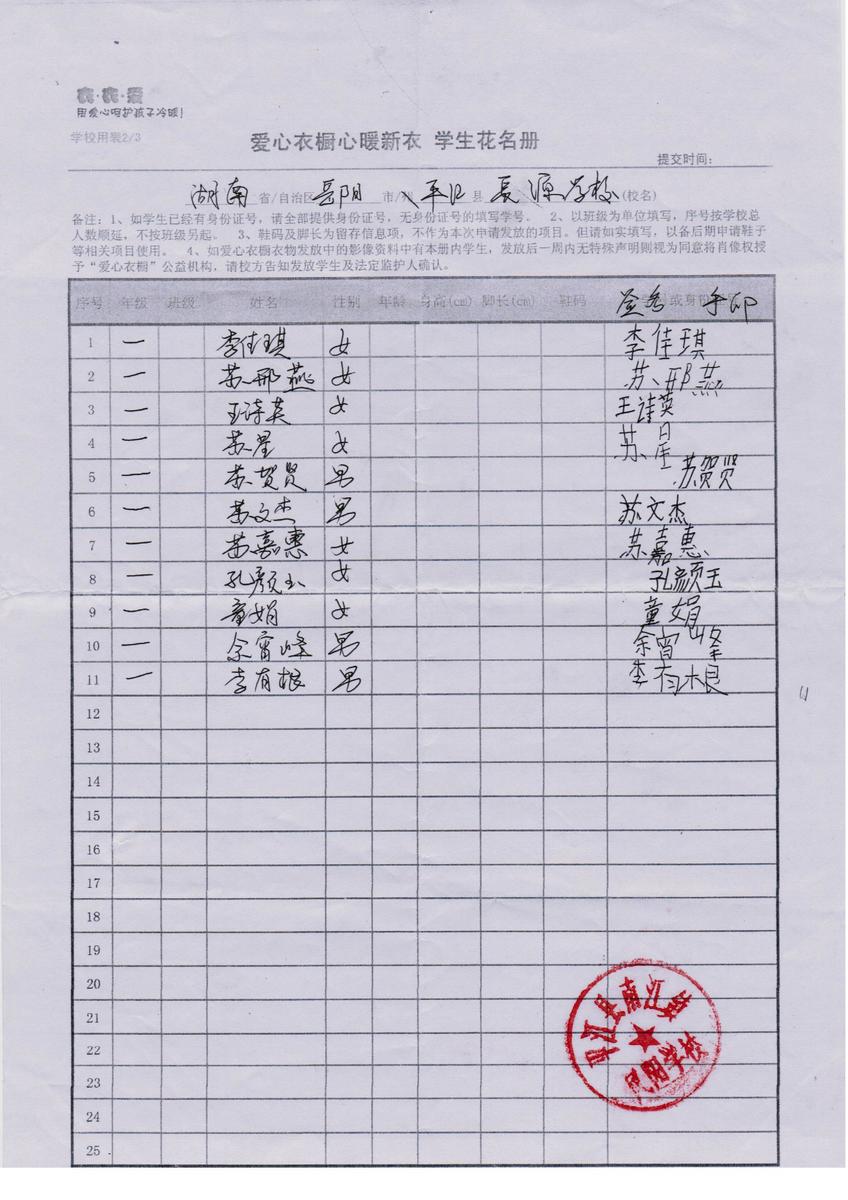 衣·衣·爱
用爱心呵护孩子冷暖!
学校用表2/3
爱心衣橱心暖新衣 学生花名册
提交时间:
湖南 省/自治区 岳阳 市/ 平江 县 长源学校 (校名)
备注:1、如学生已经有身份证号,请全部提供身份证号,无身份证号的填写学号。 2、以班级为单位填写,序号按学校总
人数顺延,不按班级另起。 3、鞋码及脚长为留存信息项,不作为本次申请发放的项目。但请如实填写,以备后期申请鞋子
等相关项目使用。 4、如爱心衣橱衣物发放中的影像资料中有本册内学生,发放后一周内无特殊声明则视为同意将肖像权授
予“爱心衣橱”公益机构,请校方告知发放学生及法定监护人确认。
序号 年级 班级 姓名 性别 年龄 身高(cm) 脚长(cm) 鞋码 或身份 签名 手印
1 一 李佳琪 女 李佳琪
2 一 苏邢燕 女 苏邢燕
3 一 王诗英 女 王诗英
4 一 苏星 女 苏星
5 一 苏贺贤 男 苏贺贤
6 一 苏文杰 男 苏文杰
7 一 苏嘉惠 女 苏嘉惠
8 一 孔颜玉 女 孔颜玉
9 一 童娟 女 童娟
10 一 余宵峰 男 余宵峰
11 一 李有根 男 李有根
11
12
13
14
15
16
17
18
19
20
21
22
23
24
25
平江县南江镇
凤阳学校